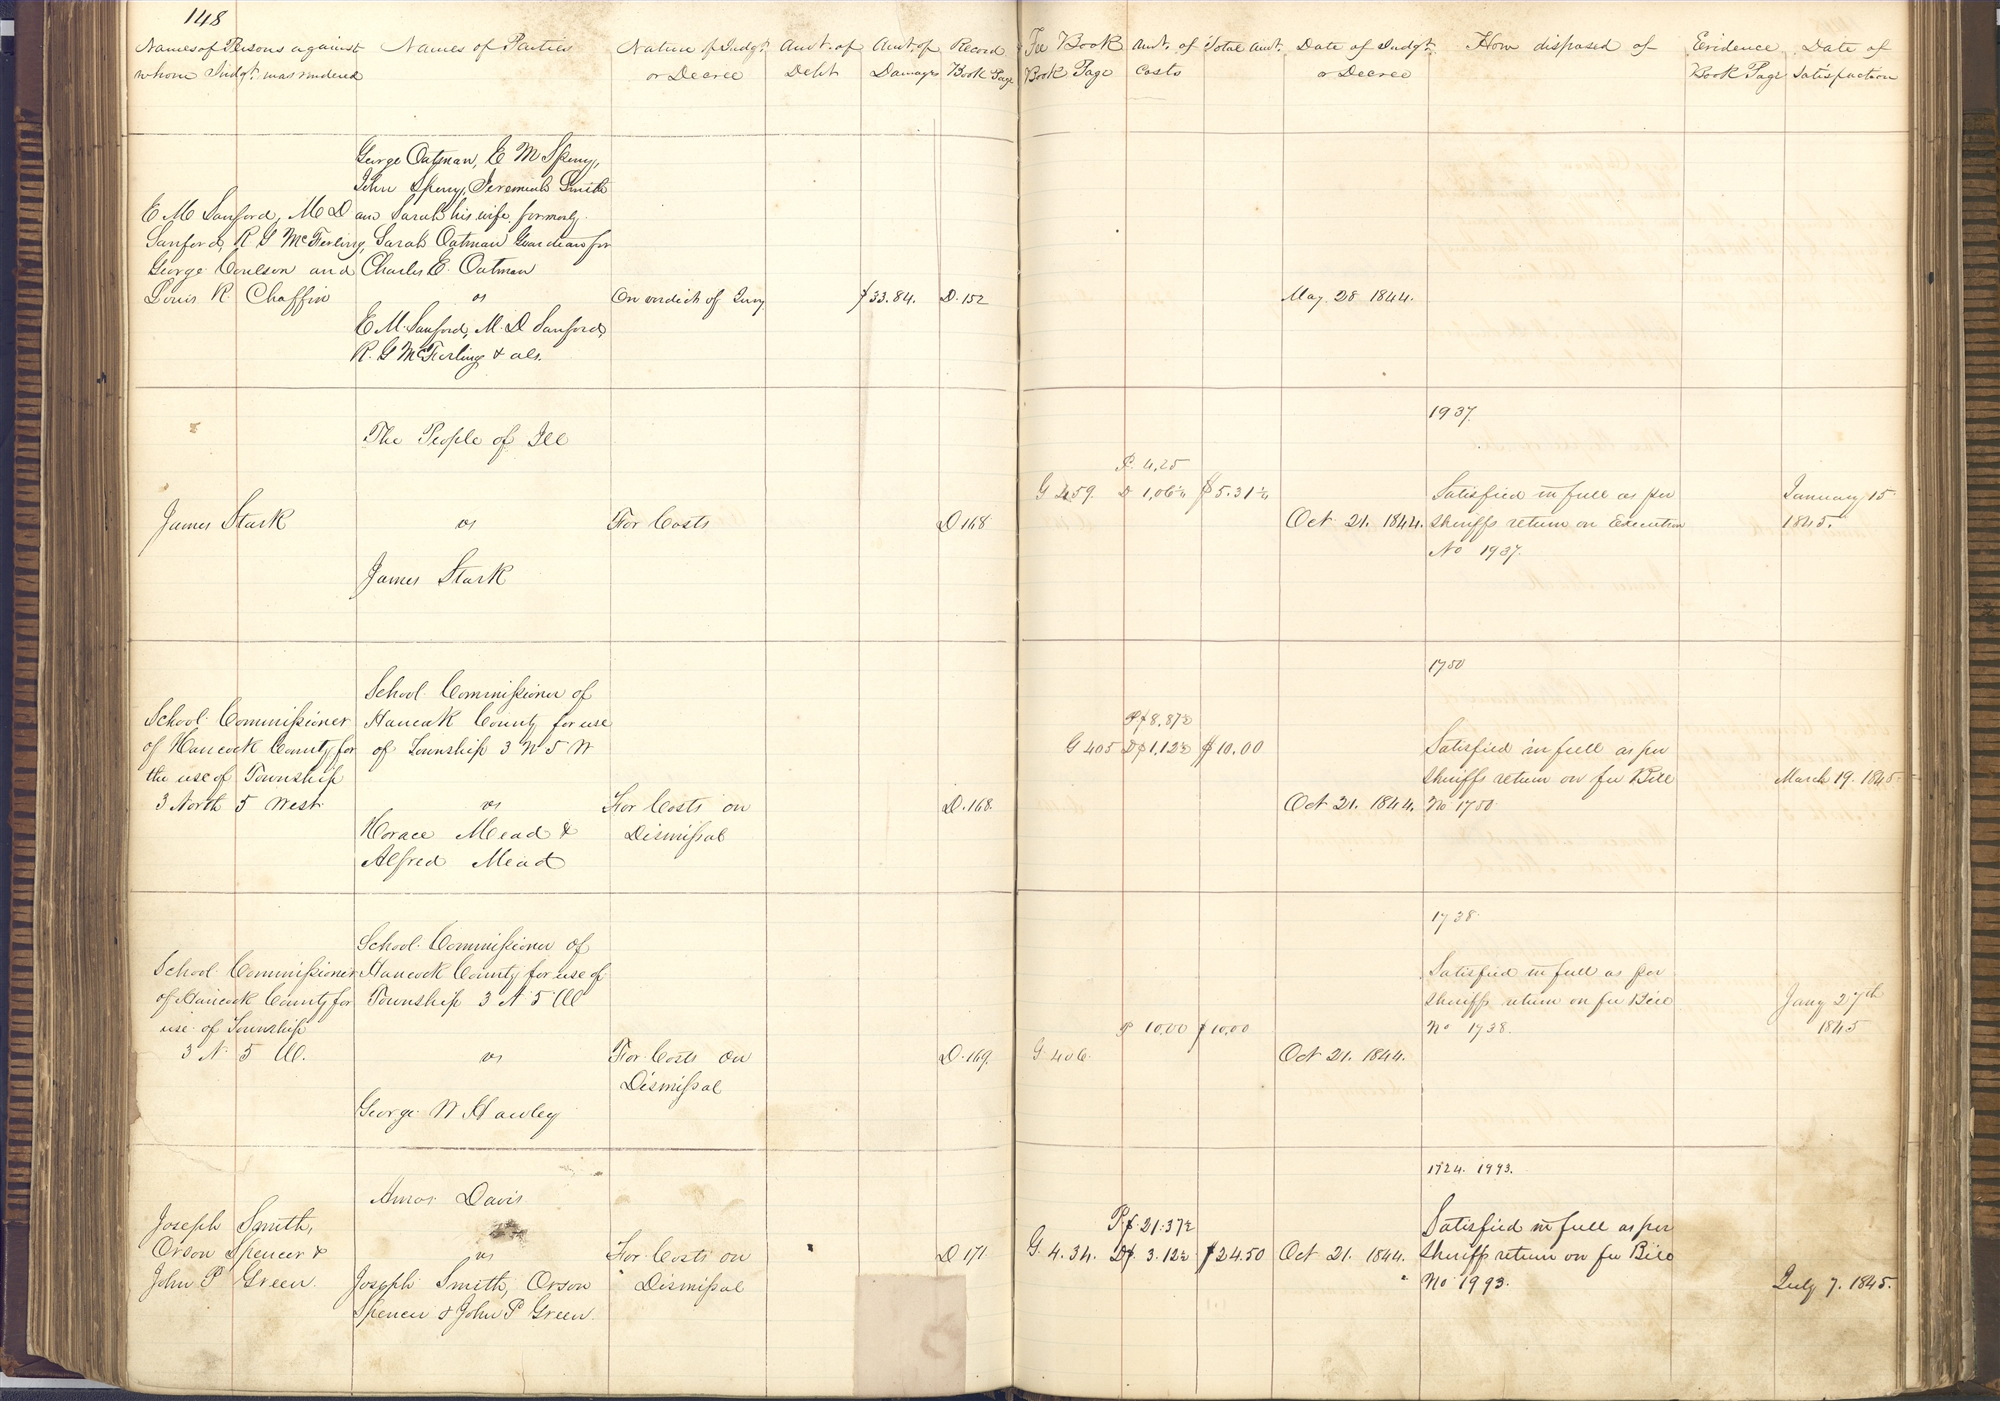 148
Names of Persons against whom Judgt. was rendered
Names of Parties
Nature of Judgt. or Decree
Amt. of Debt
Amt. of Damages
Record Book Page
Fee Book Book Page
Amt. of Costs
Total Amt.
Date of Judgt. or Decree
How disposed of
Evidence Book Page
Date of Satisfaction
E M Sanford, M D
Sanford, R G McTerling,
George Coulson and
Louis R. Chaffin
George Oatman, E M Sperry,
John Sperry, Jeremiah Smith
and Sarah his wife formerly
Sarah Oatman Guardian for
Charles E. Oatman
vs
E M. Sanford, M. D Sanford,
R. G McTerling & als.
On verdict of Jury
$33.84.
D. 152
May. 28 1844.
James Stark
The People of Ill
vs
James Stark
For Costs
D. 168
G 459.
P. 4,25
D 1,06¼
$5.31¼
Oct 21. 1844.
1937.
Satisfied in full as per
sheriffs return on Execution
No 1937.
January 15
1845.
School Commissioner
of Hancock County for
the use of Township
3 North 5 West
School Commissioner of
Hancock County for use
of Township 3 N 5 W
vs
Horace Mead &
Alfred Mead
For Costs on
Dismissal
D. 168.
G 405
P$8.87½
D$1,12½
$10.00
Oct 21. 1844.
1750
Satisfied in full as per
sheriffs return on fee Bill
No 1750
March 19. 1845
School Commissioner
of Hancock County for
use of Township
3 N. 5 W.
School Commissioner of
Hancock County for use of
Township 3 N 5 W
vs
George W Hawley
For Costs on
Dismissal
D. 169.
G. 406.
P 10.00
$10.00
Oct 21. 1844.
1738.
Satisfied in full as per
sheriffs return on fee Bill
No 1738.
Jany 27th
1845
Joseph Smith,
Orson Spencer &
John P Green.
Amos Davis
vs
Joseph Smith, Orson
Spencer & John P Green.
For Costs on
Dismissal
D 171.
G. 434.
P$ 21.37½
D$ 3.12½
$24.50
Oct 21. 1844.
1724. 1993.
Satisfied in full as per
sheriffs return on fee Bill
No 1993.
July 7. 1845.